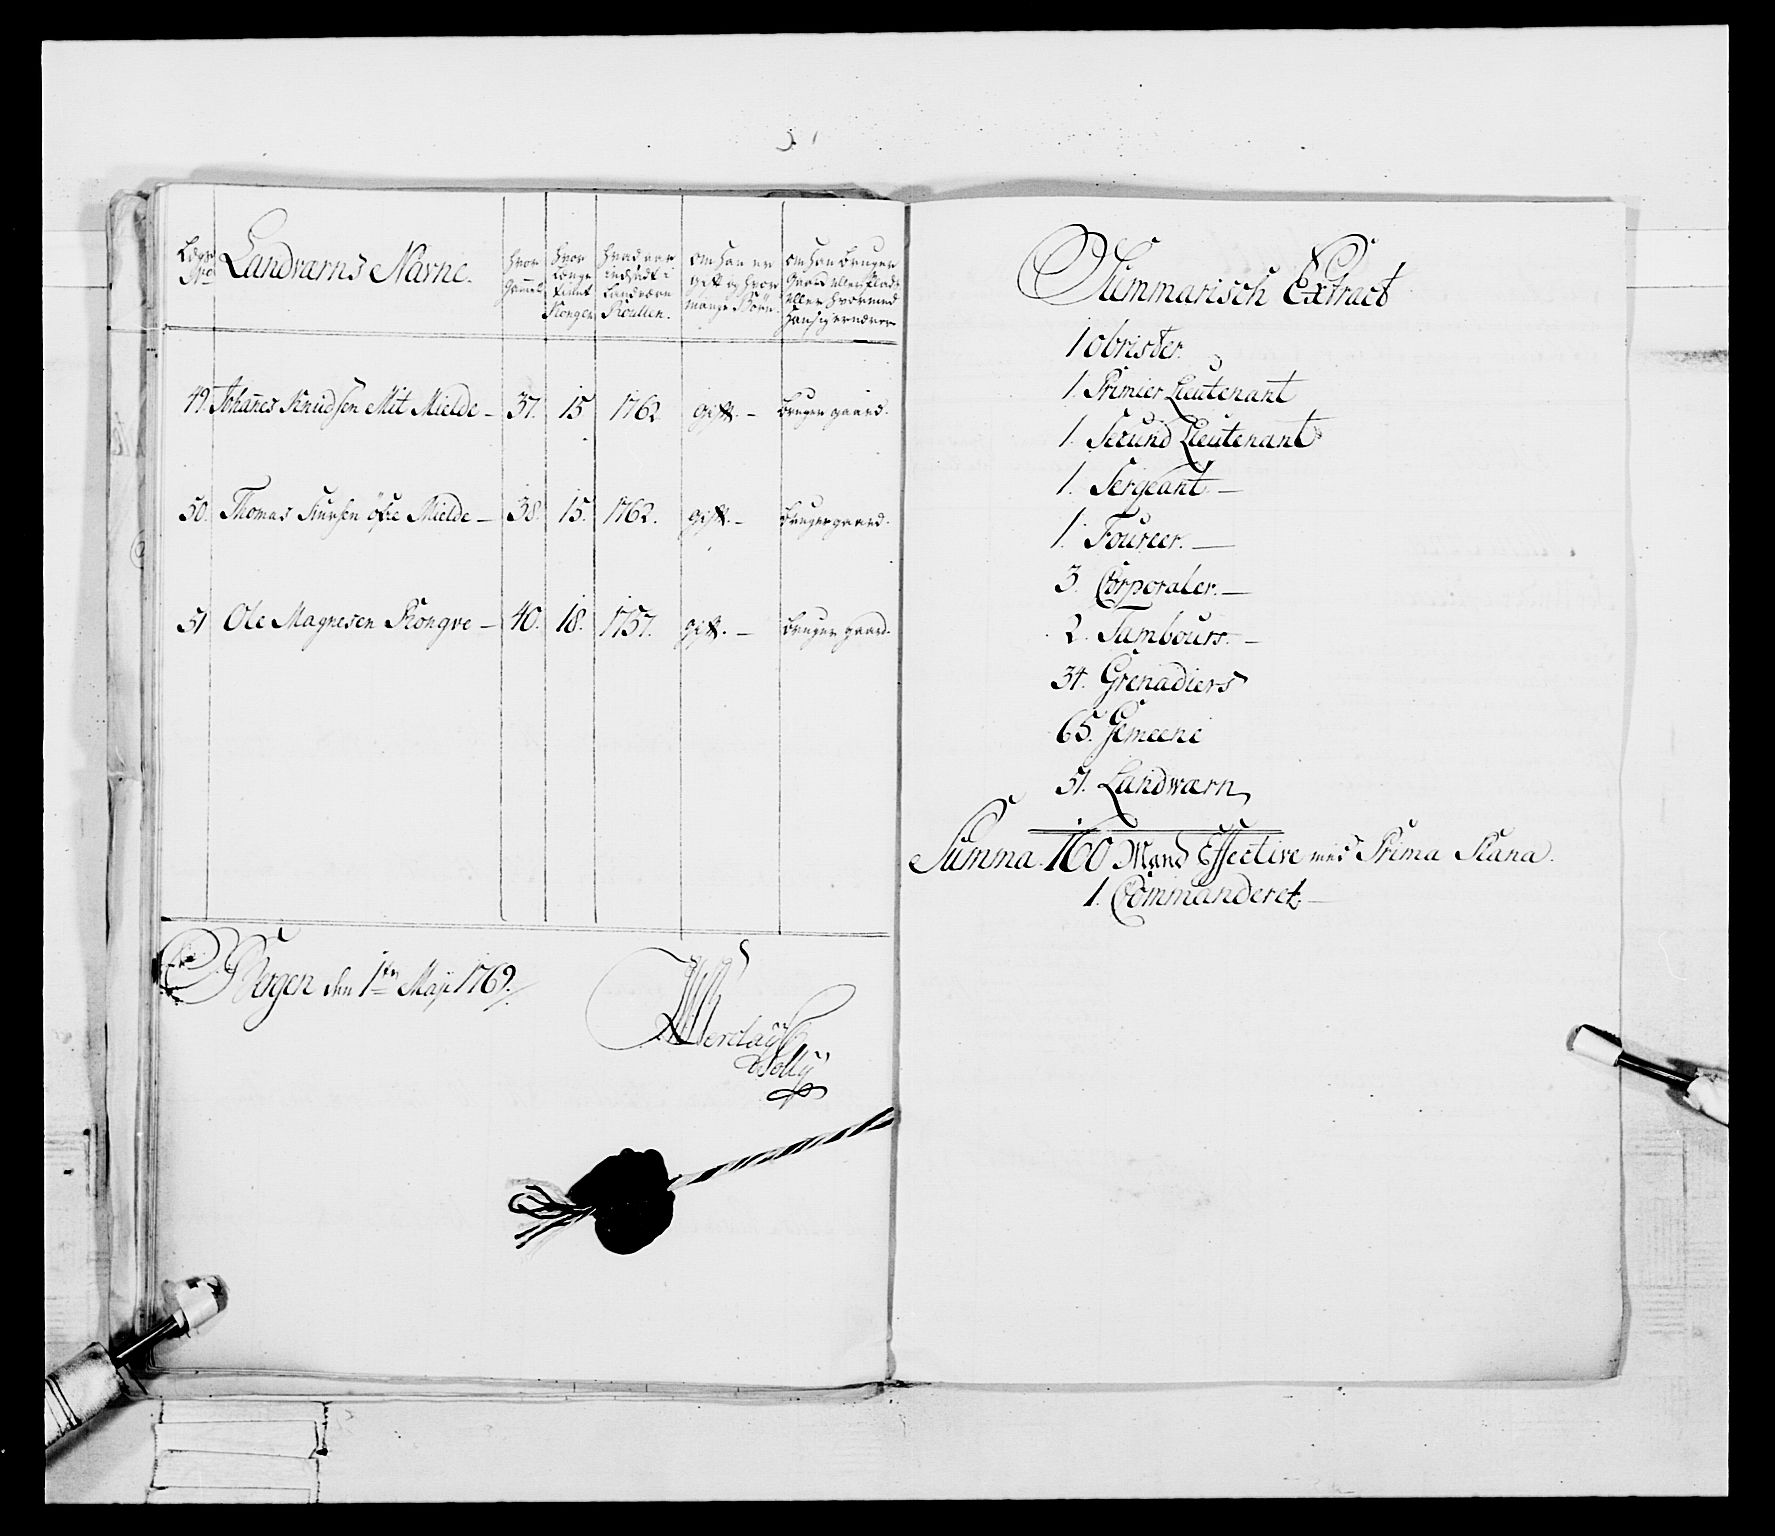 Lægs No Landværns Navne. hvor gammel hvor Længe tient Kongen hvad aar indsadt i Landværn Roullen. om han er gift og hvor mange Börn om han bruger gaard eller Plads eller hvormed han sig ernærer
49. Johanes Knudsen Mit Mielde — 37. 15 1762 gift. — bruger gaard.
50. Thomas Knudsen öfre Mielde — 38. 15. 1762. gift. — bruger gaard.
51 Ole Magnesen Kongve — 40. 18. 1757. gift. — bruger gaard.
Bergen den 1ten Maji 1769.
Summarisch Extract
1 obrister.
1. Primier Lieutenant
1. Secund Lieutenant
1. Sergeant. —
1. Foureer. —
3. Corporaler. —
2. Tambours. —
34. Grenadiers
65. Gemeene
51. Landwærn
Summa. 160 Mand Effective med Prima Plana.
1. Commanderet. —